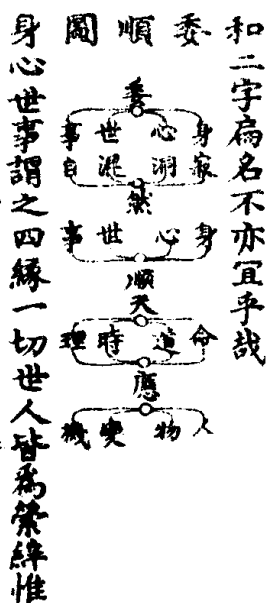 和二字扁名不亦宜乎哉
委順圖
委
身心世事
寂洞混自
然
身心世事
順
天
命道時理
應
人物變機
身心世事謂之四緣一切世人皆為縈絆惟